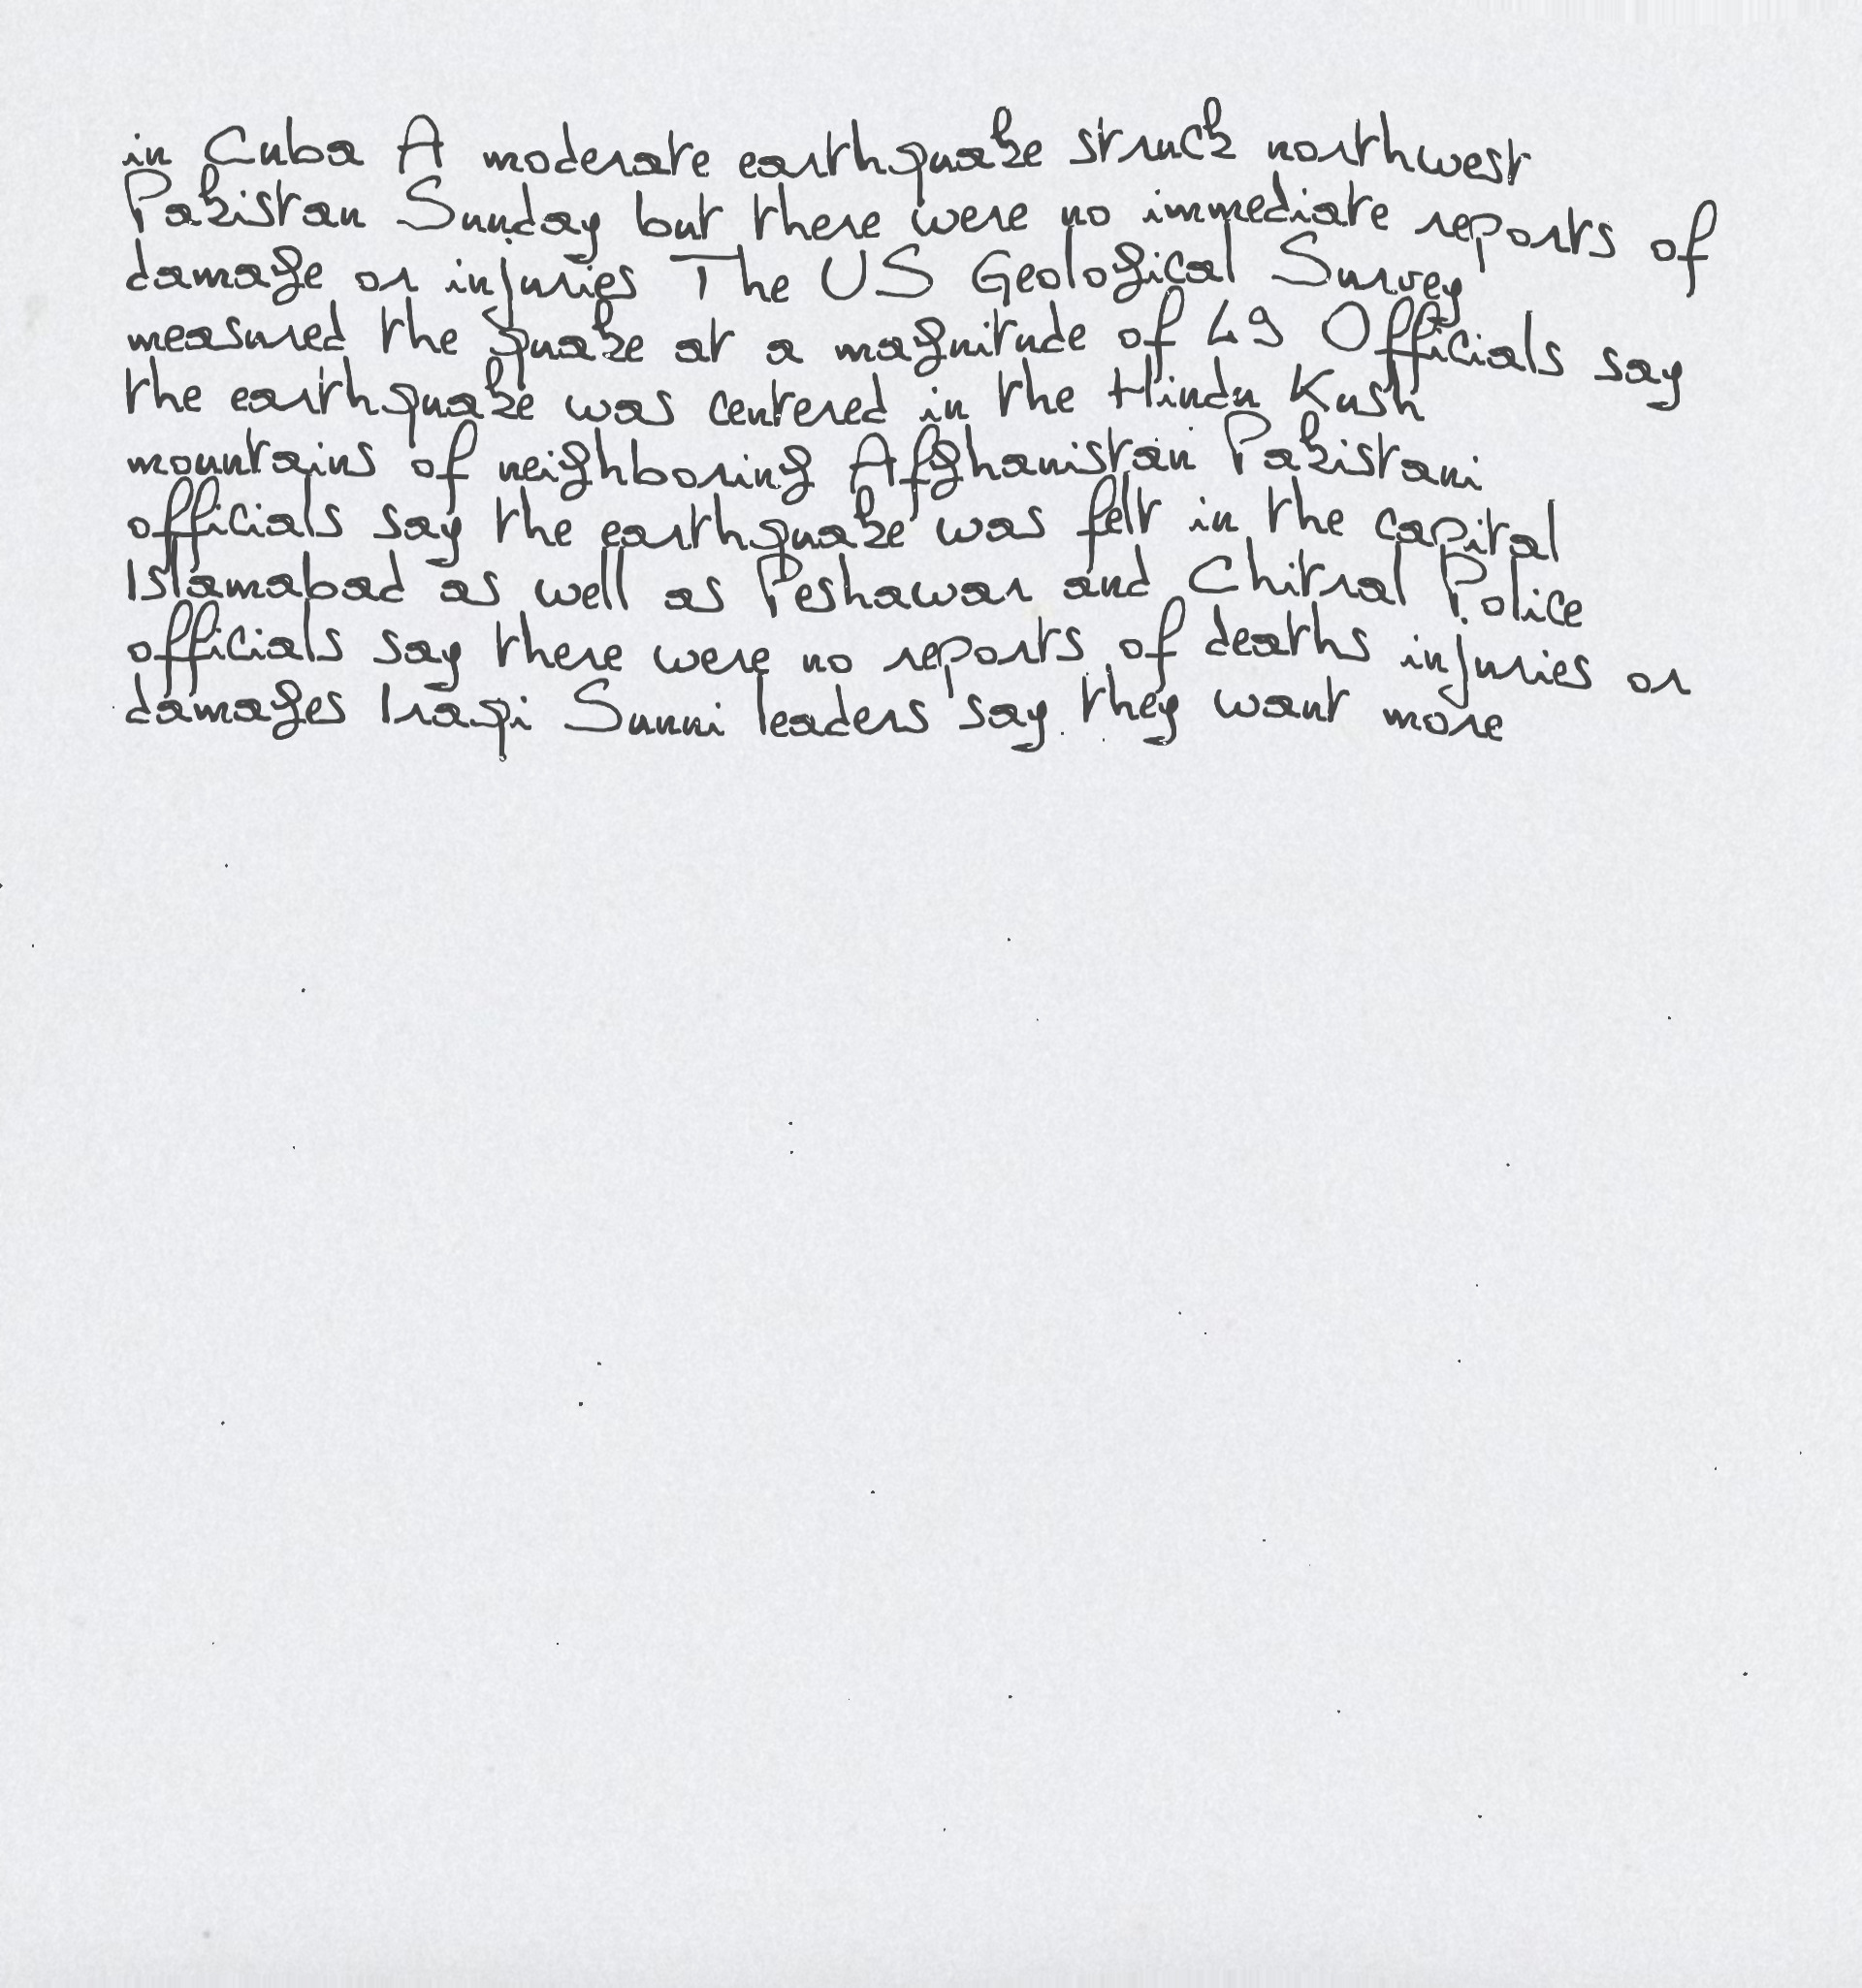 in Cuba A moderate earthquake struck northwest
Pakistan Sunday but there were no immediate reports of
damage or injuries The US Geological Survey
measured the quake at a magnitude of 49 Officials say
the earthquake was centered in the Hindu Kush
mountains of neighboring Afghanistan Pakistani
officials say the earthquake was felt in the capital
Islamabad as well as Peshawar and Chitral Police
officials say there were no reports of deaths injuries or
damages Iraqi Sunni leaders say they want more